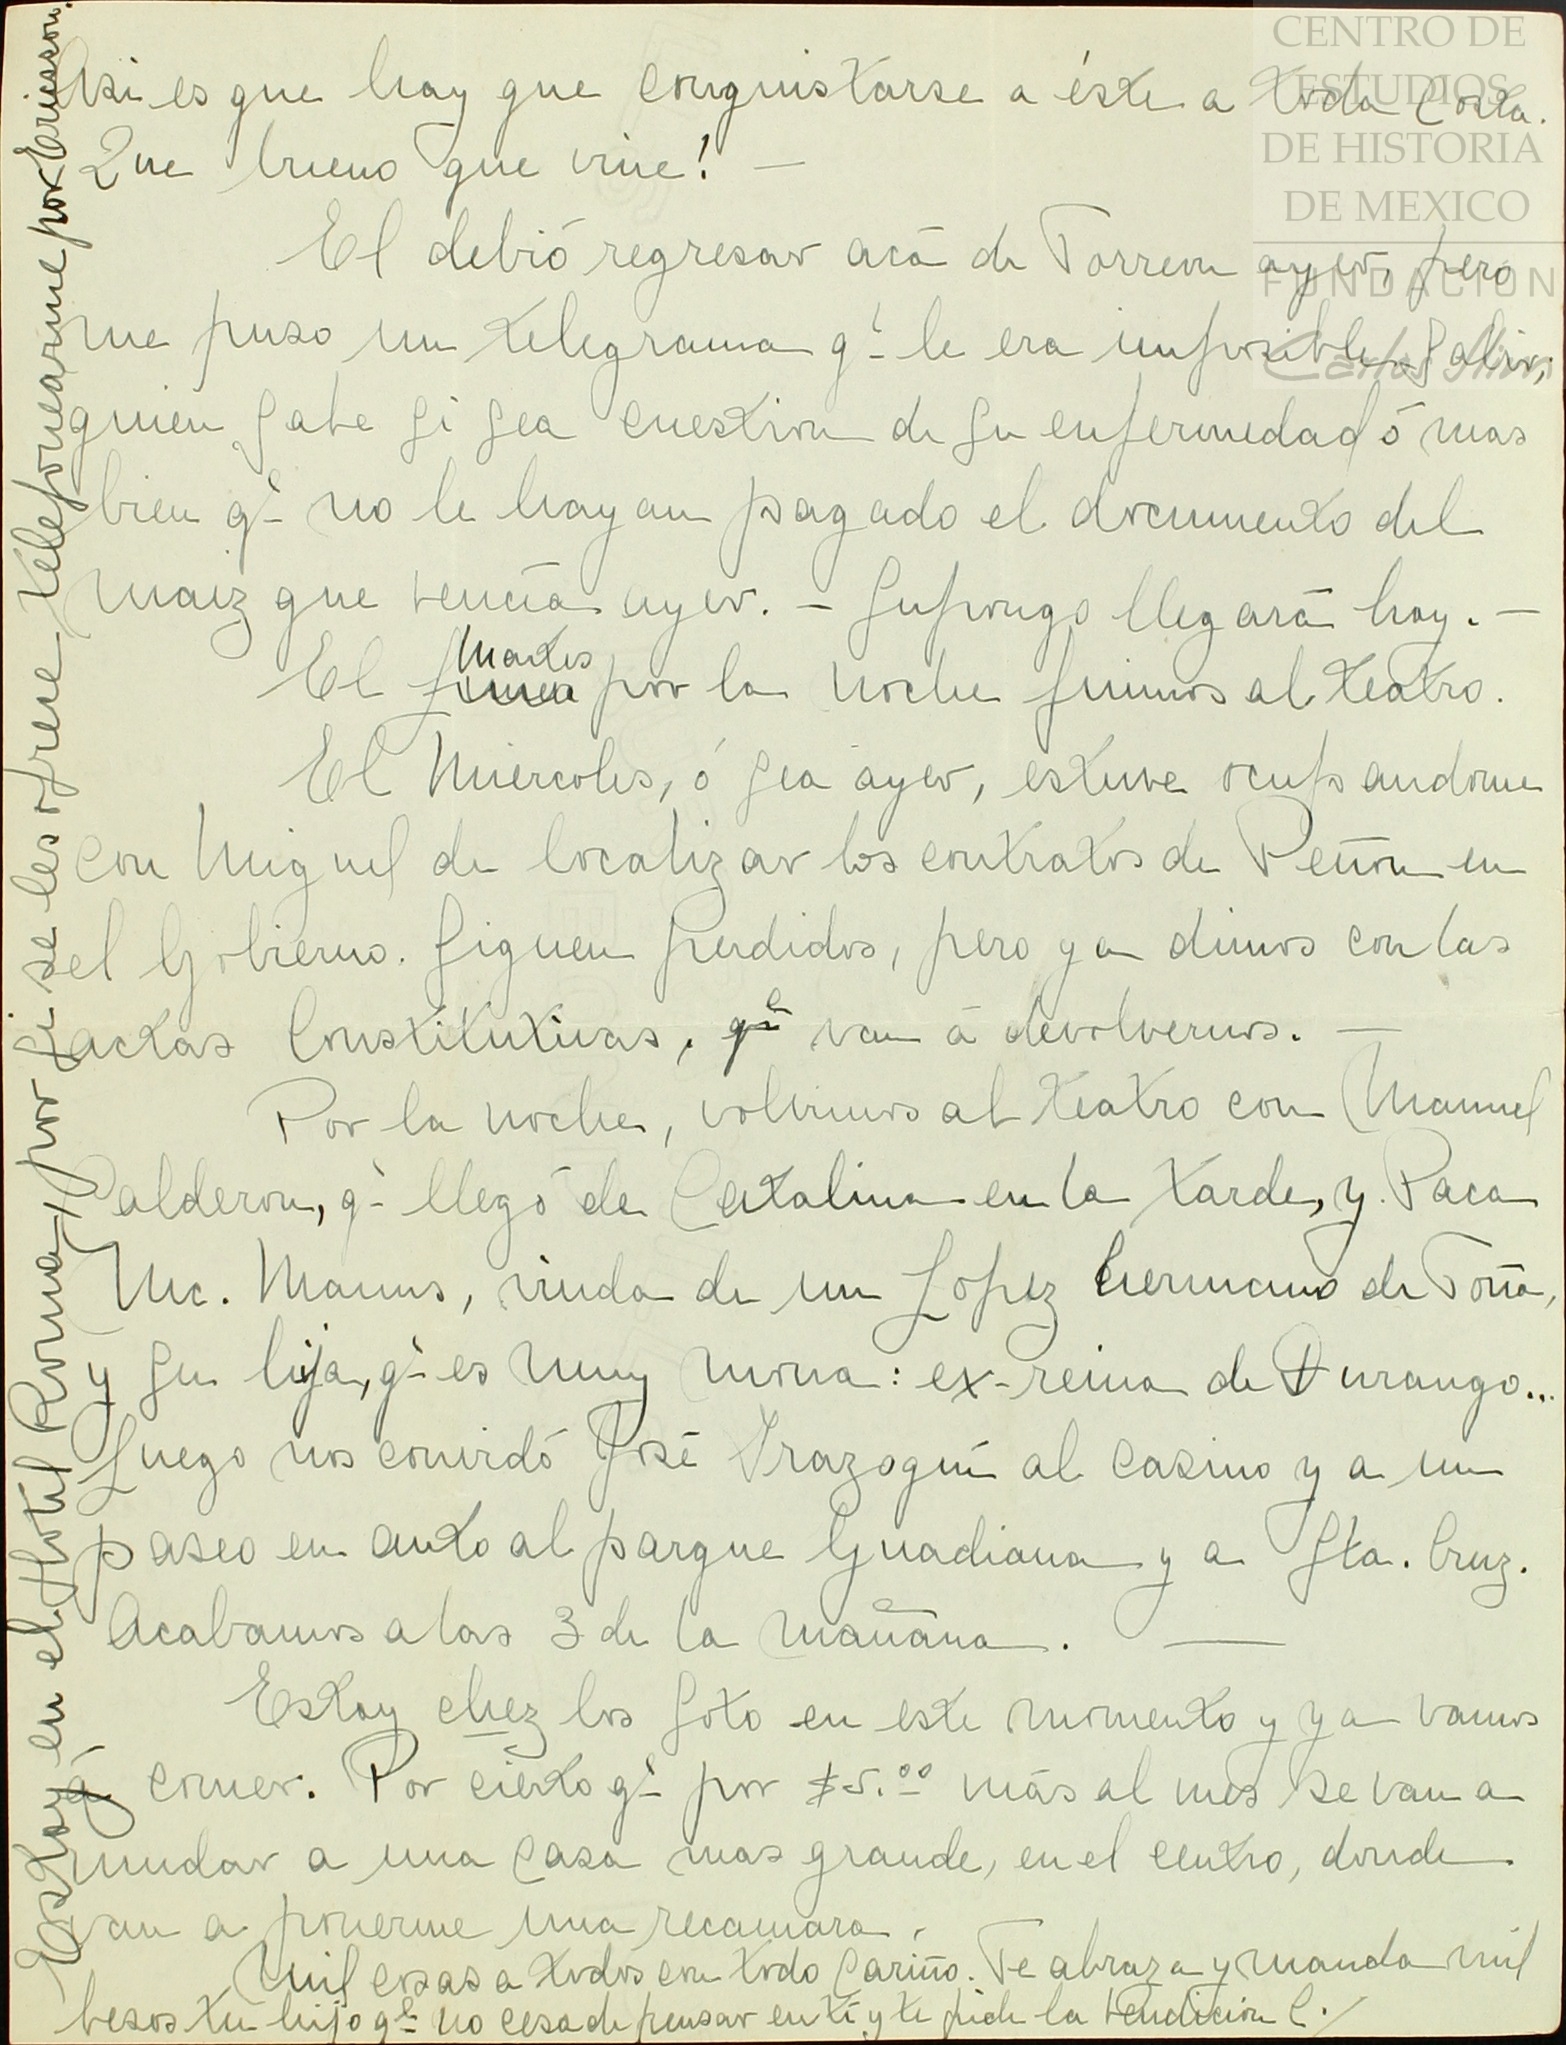 Asi es que hay que conquistarse a éste a toda costa.
Que bueno que vine! —
El debió regresar acá de Torreon ayer, pero
me puso un telegrama qe le era imposible salir;
quien sabe si sea cuestion de su enfermedad ó mas
bien qe no le hayan pagado el documento del
maiz que tenía ayer. — Supongo llegará hoy. —
El Martes por la noche fuimos al teatro.
El Miercoles, ó sea ayer, estuve ocupandome
con Miguel de localizar los contratos de Peñon en
el Gobierno. Siguen perdidos, pero ya dimos con las
actas Constitutivas, qe van á devolvernos. —
Por la noche, volvimos al teatro con Manuel
Calderon, qe llegó de Catalina en la tarde, y Paca
Mc. Manus, viuda de un Lopez hermano de Toña,
y su hija, qe es muy mona: ex-reina de Durango...
Luego nos convidó José Irazoqui al casino y a un
paseo en auto al parque Guadiana y a Sta. Cruz.
Acabamos a las 3 de la mañana. —
Estoy chez los Soto en este momento y ya vamos
á comer. Por cierto qe por $5.00 más al mes se van a
mudar a una casa mas grande, en el centro, donde
van a ponerme una recamara.
Mil cosas a todos con todo cariño. Te abraza y manda mil
besos tu hijo qe no cesa de pensar en tí y te pide la bendicion C./
Estoy en el Hotel Roma, por si se les ofrece telefonearme por Ericsson.
CENTRO DE
ESTUDIOS
DE HISTORIA
DE MEXICO
FUNDACIÓN
Carlos Slim